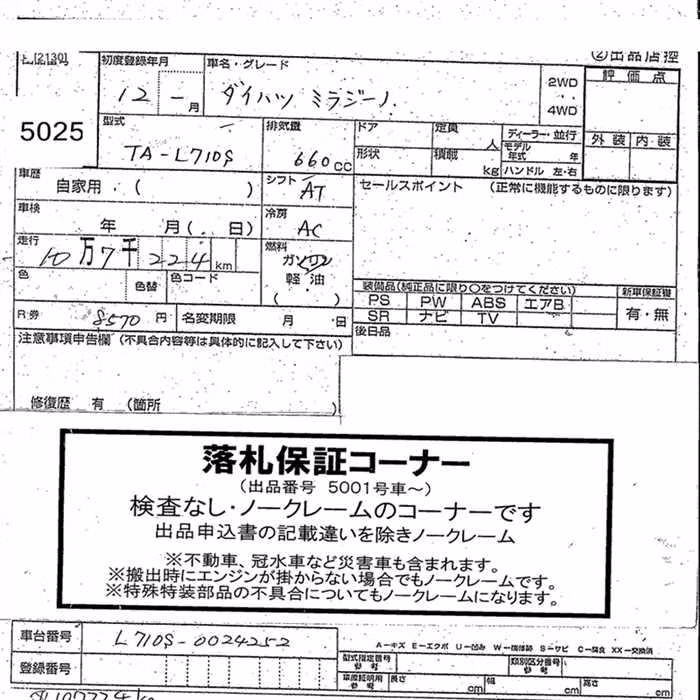 ②出品店控
初度登録年月 車名・グレード 2WD 評価点
12 - 月 ダイハツ ミラジーノ 4WD
5025
型式 排気量 ドア 定員 人 ディーラー・並行 外装 内装
TA-L710S 660cc 形状 積載 kg モデル年式 年 ハンドル 左・右
車歴 自家用・( ) シフト AT セールスポイント (正常に機能するものに限ります)
車検 年 月(・日) 冷房 AC
走行 10万7千224km 燃料 ガソリン
色 色替 色コード 軽油
( )
装備品(純正品に限り○をつけてください) 新車保証書
PS PW ABS エアB 有・無
SR ナビ TV
R券 8570円 名変期限 月 日 後日品
注意事項申告欄(不具合内容等は具体的に記入して下さい)
修復歴 有 (箇所 )
落札保証コーナー
(出品番号 5001号車～)
検査なし・ノークレームのコーナーです
出品申込書の記載違いを除きノークレーム
※不動車、冠水車など災害車も含まれます。
※搬出時にエンジンが掛からない場合でもノークレームです。
※特殊特装部品の不具合についてもノークレームになります。
車台番号 L710S-0024252 A-キズ E-エクボ U-凹み W-補修跡 S-サビ C-腐食 XX-交換済
登録番号 型式指定番号 参考 類別区分番号 参考
車庫証明用 参考 長さ cm 幅 cm 高さ cm